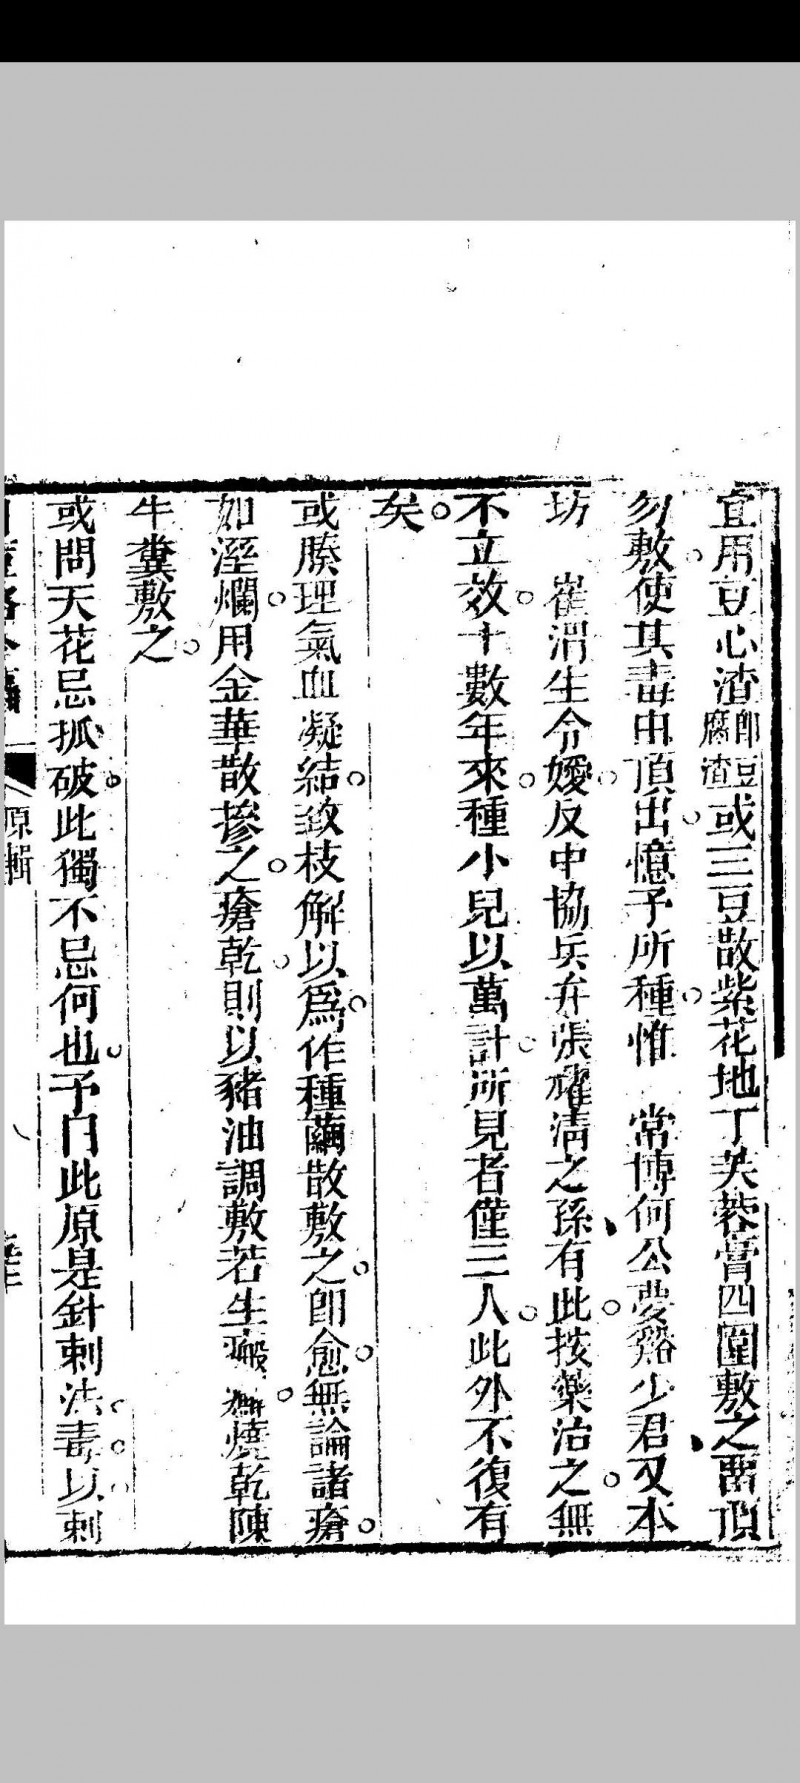 宜用豆心渣即豆腐渣或三豆散紫花地丁芙蓉膏四圍敷之畱頂
勿敷使其毒由頂出憶予所種惟 常博何公夢谿少君又本
坊 崔渭生令嬡反中協兵弁張耀淸之孫有此按藥治之無
不立效十數年來種小兒以萬計所見者僅三人此外不復有
矣
或腠理氣血凝結致枝解以爲作種繭散敷之卽愈無論諸瘡
如溼爛用金華散摻之瘡乾則以豬油調敷若生瘢燒乾陳
牛糞敷之
或問天花忌抓破此獨不忌何也予曰此原是針刺法毒以刺
原輯